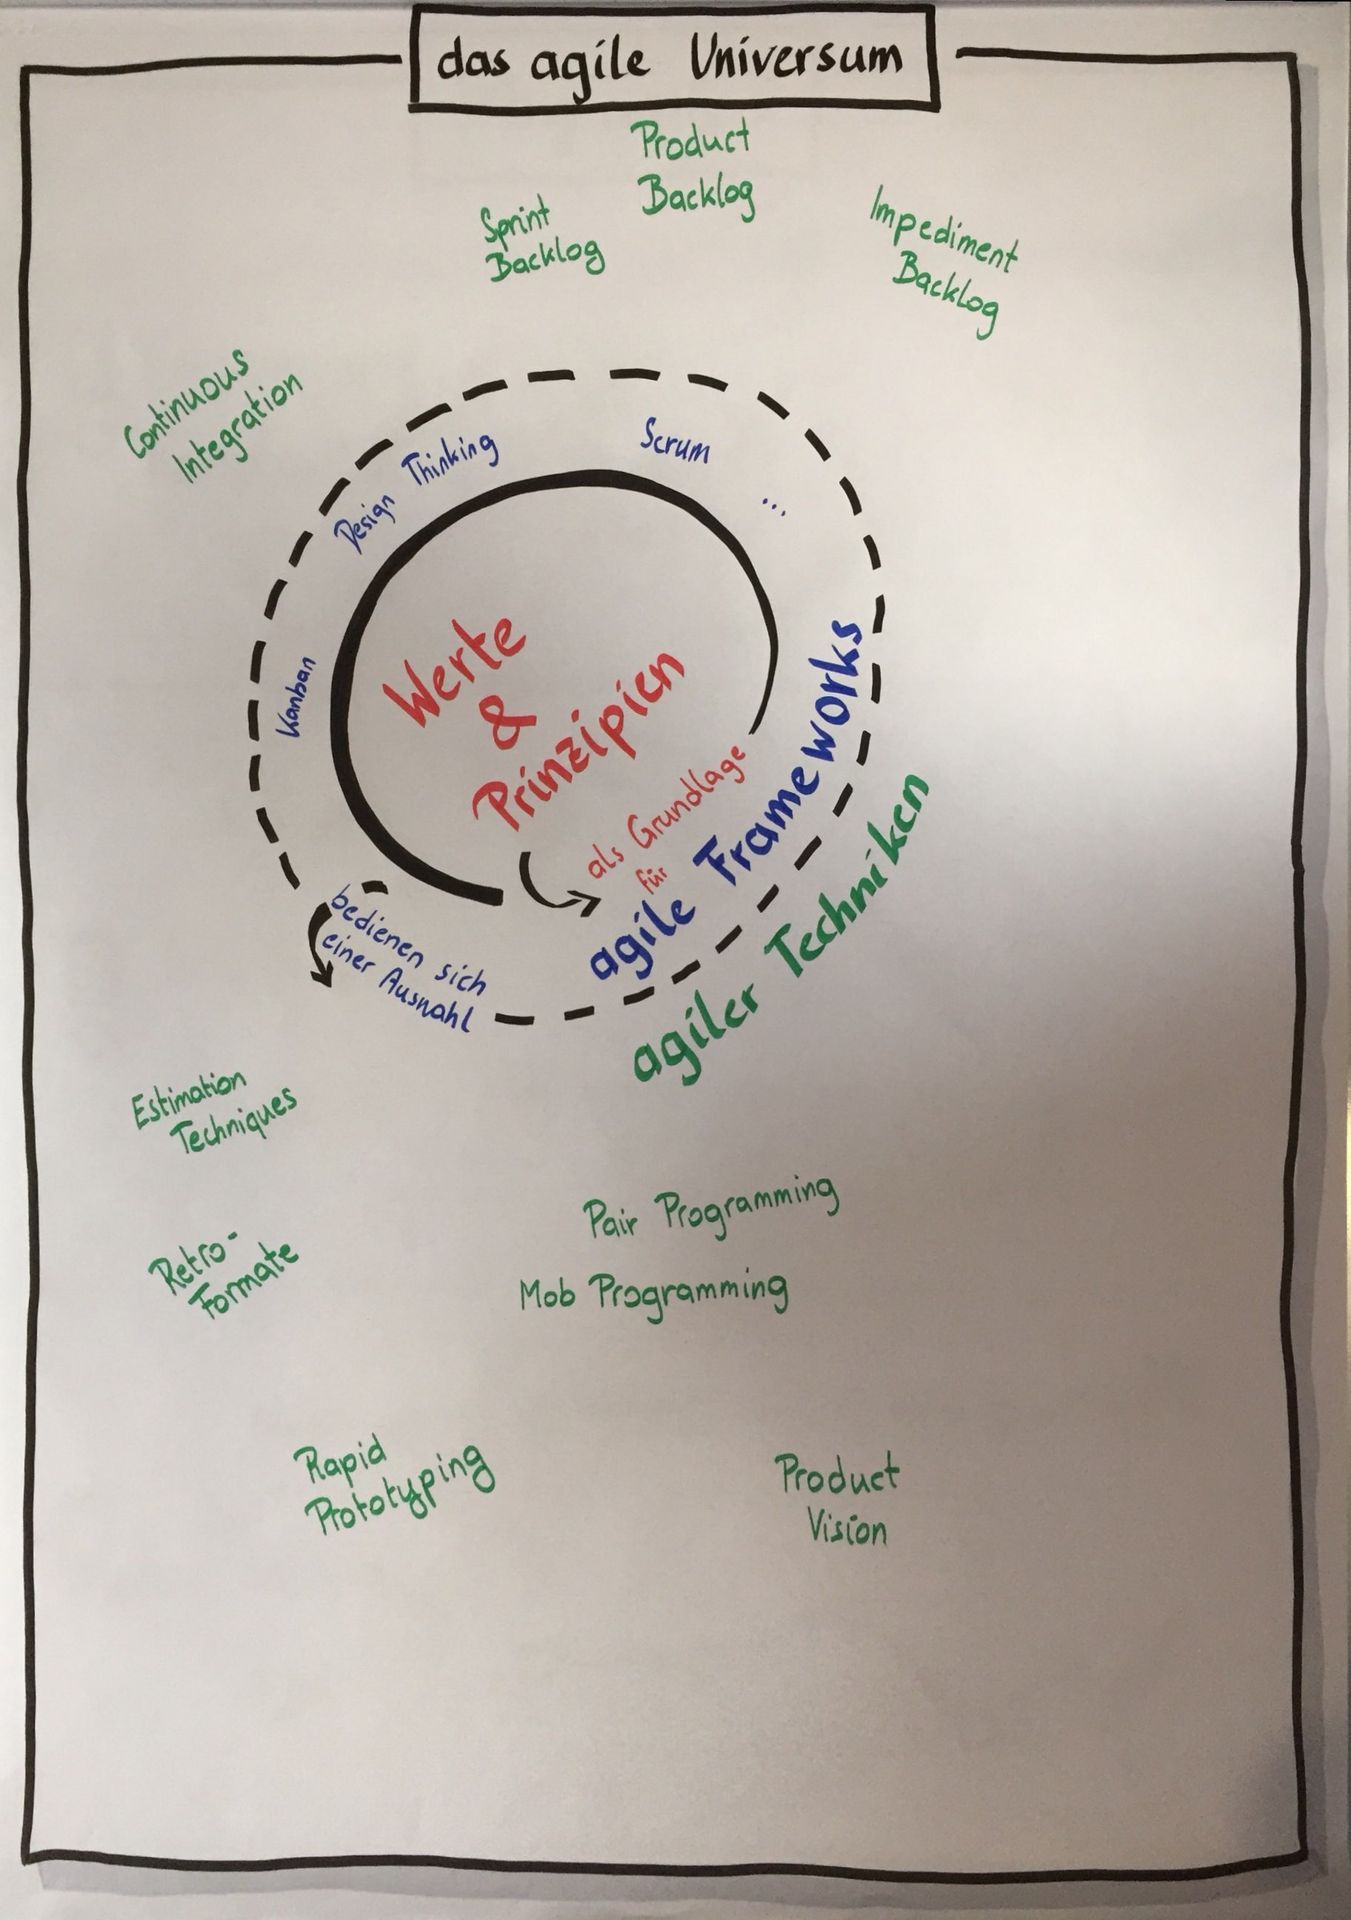 das agile Universum
Product
Backlog
Sprint
Backlog
Impediment
Backlog
Continuous
Integration
Design Thinking
Scrum
...
Kanban
Werte
&
Prinzipien
als Grundlage
für
agile Frameworks
bedienen sich
einer Auswahl
agiler Techniken
Estimation
Techniques
Retro-
Formate
Pair Programming
Mob Programming
Rapid
Prototyping
Product
Vision